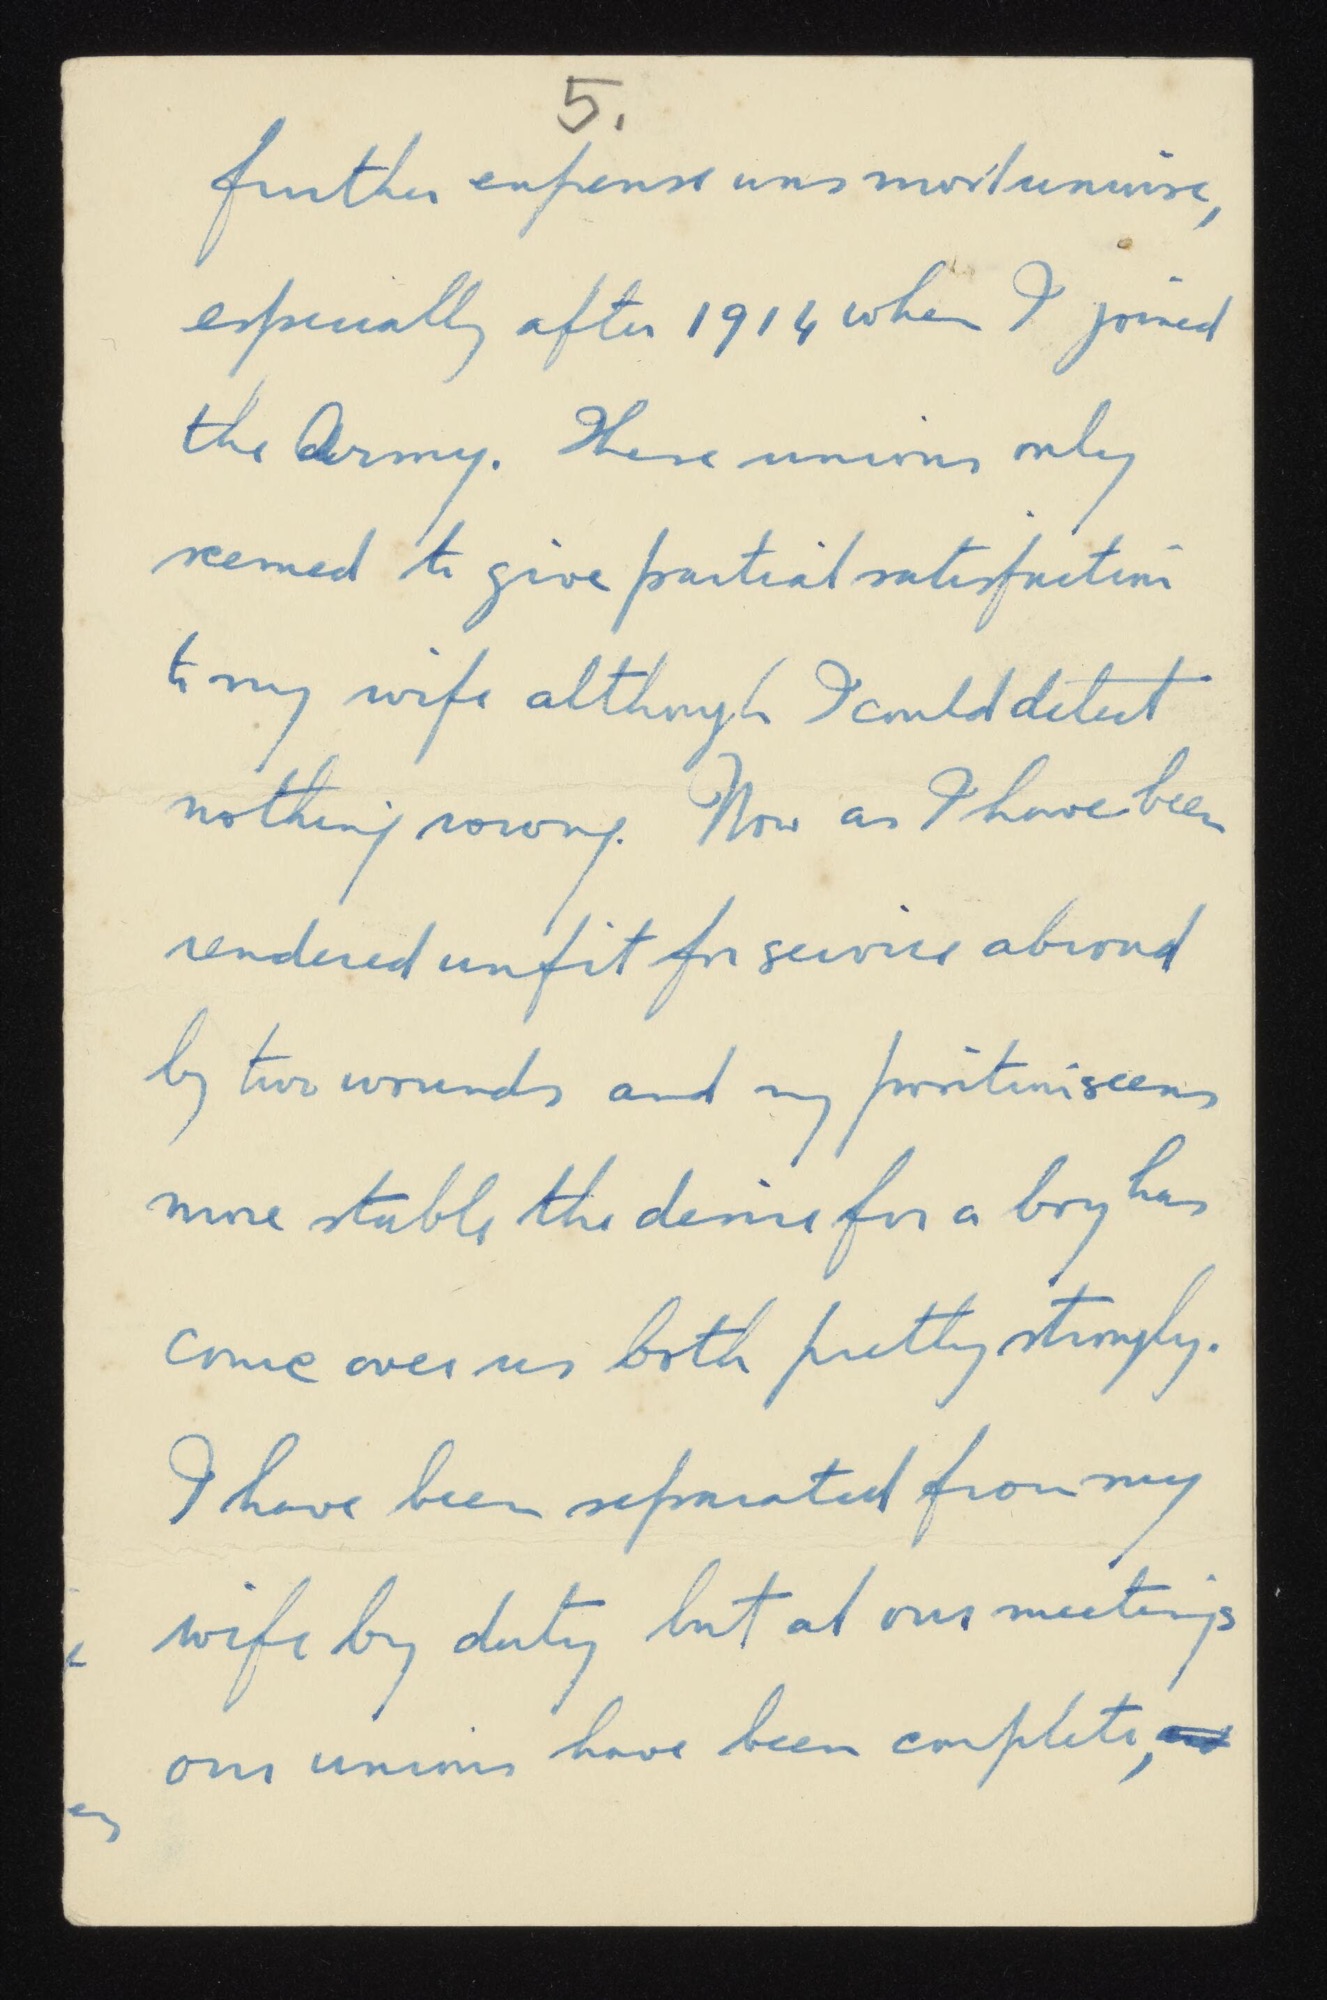 5.
further expense was most unwise,
especially after 1914 when I joined
the Army. These unions only
seemed to give partial satisfaction
to my wife although I could detect
nothing wrong. Now as I have been
rendered unfit for service abroad
by two wounds and my position seems
more stable the desire for a boy has
come over us both pretty strongly.
I have been separated from my
wife by duty but at our meetings
our unions have been complete,